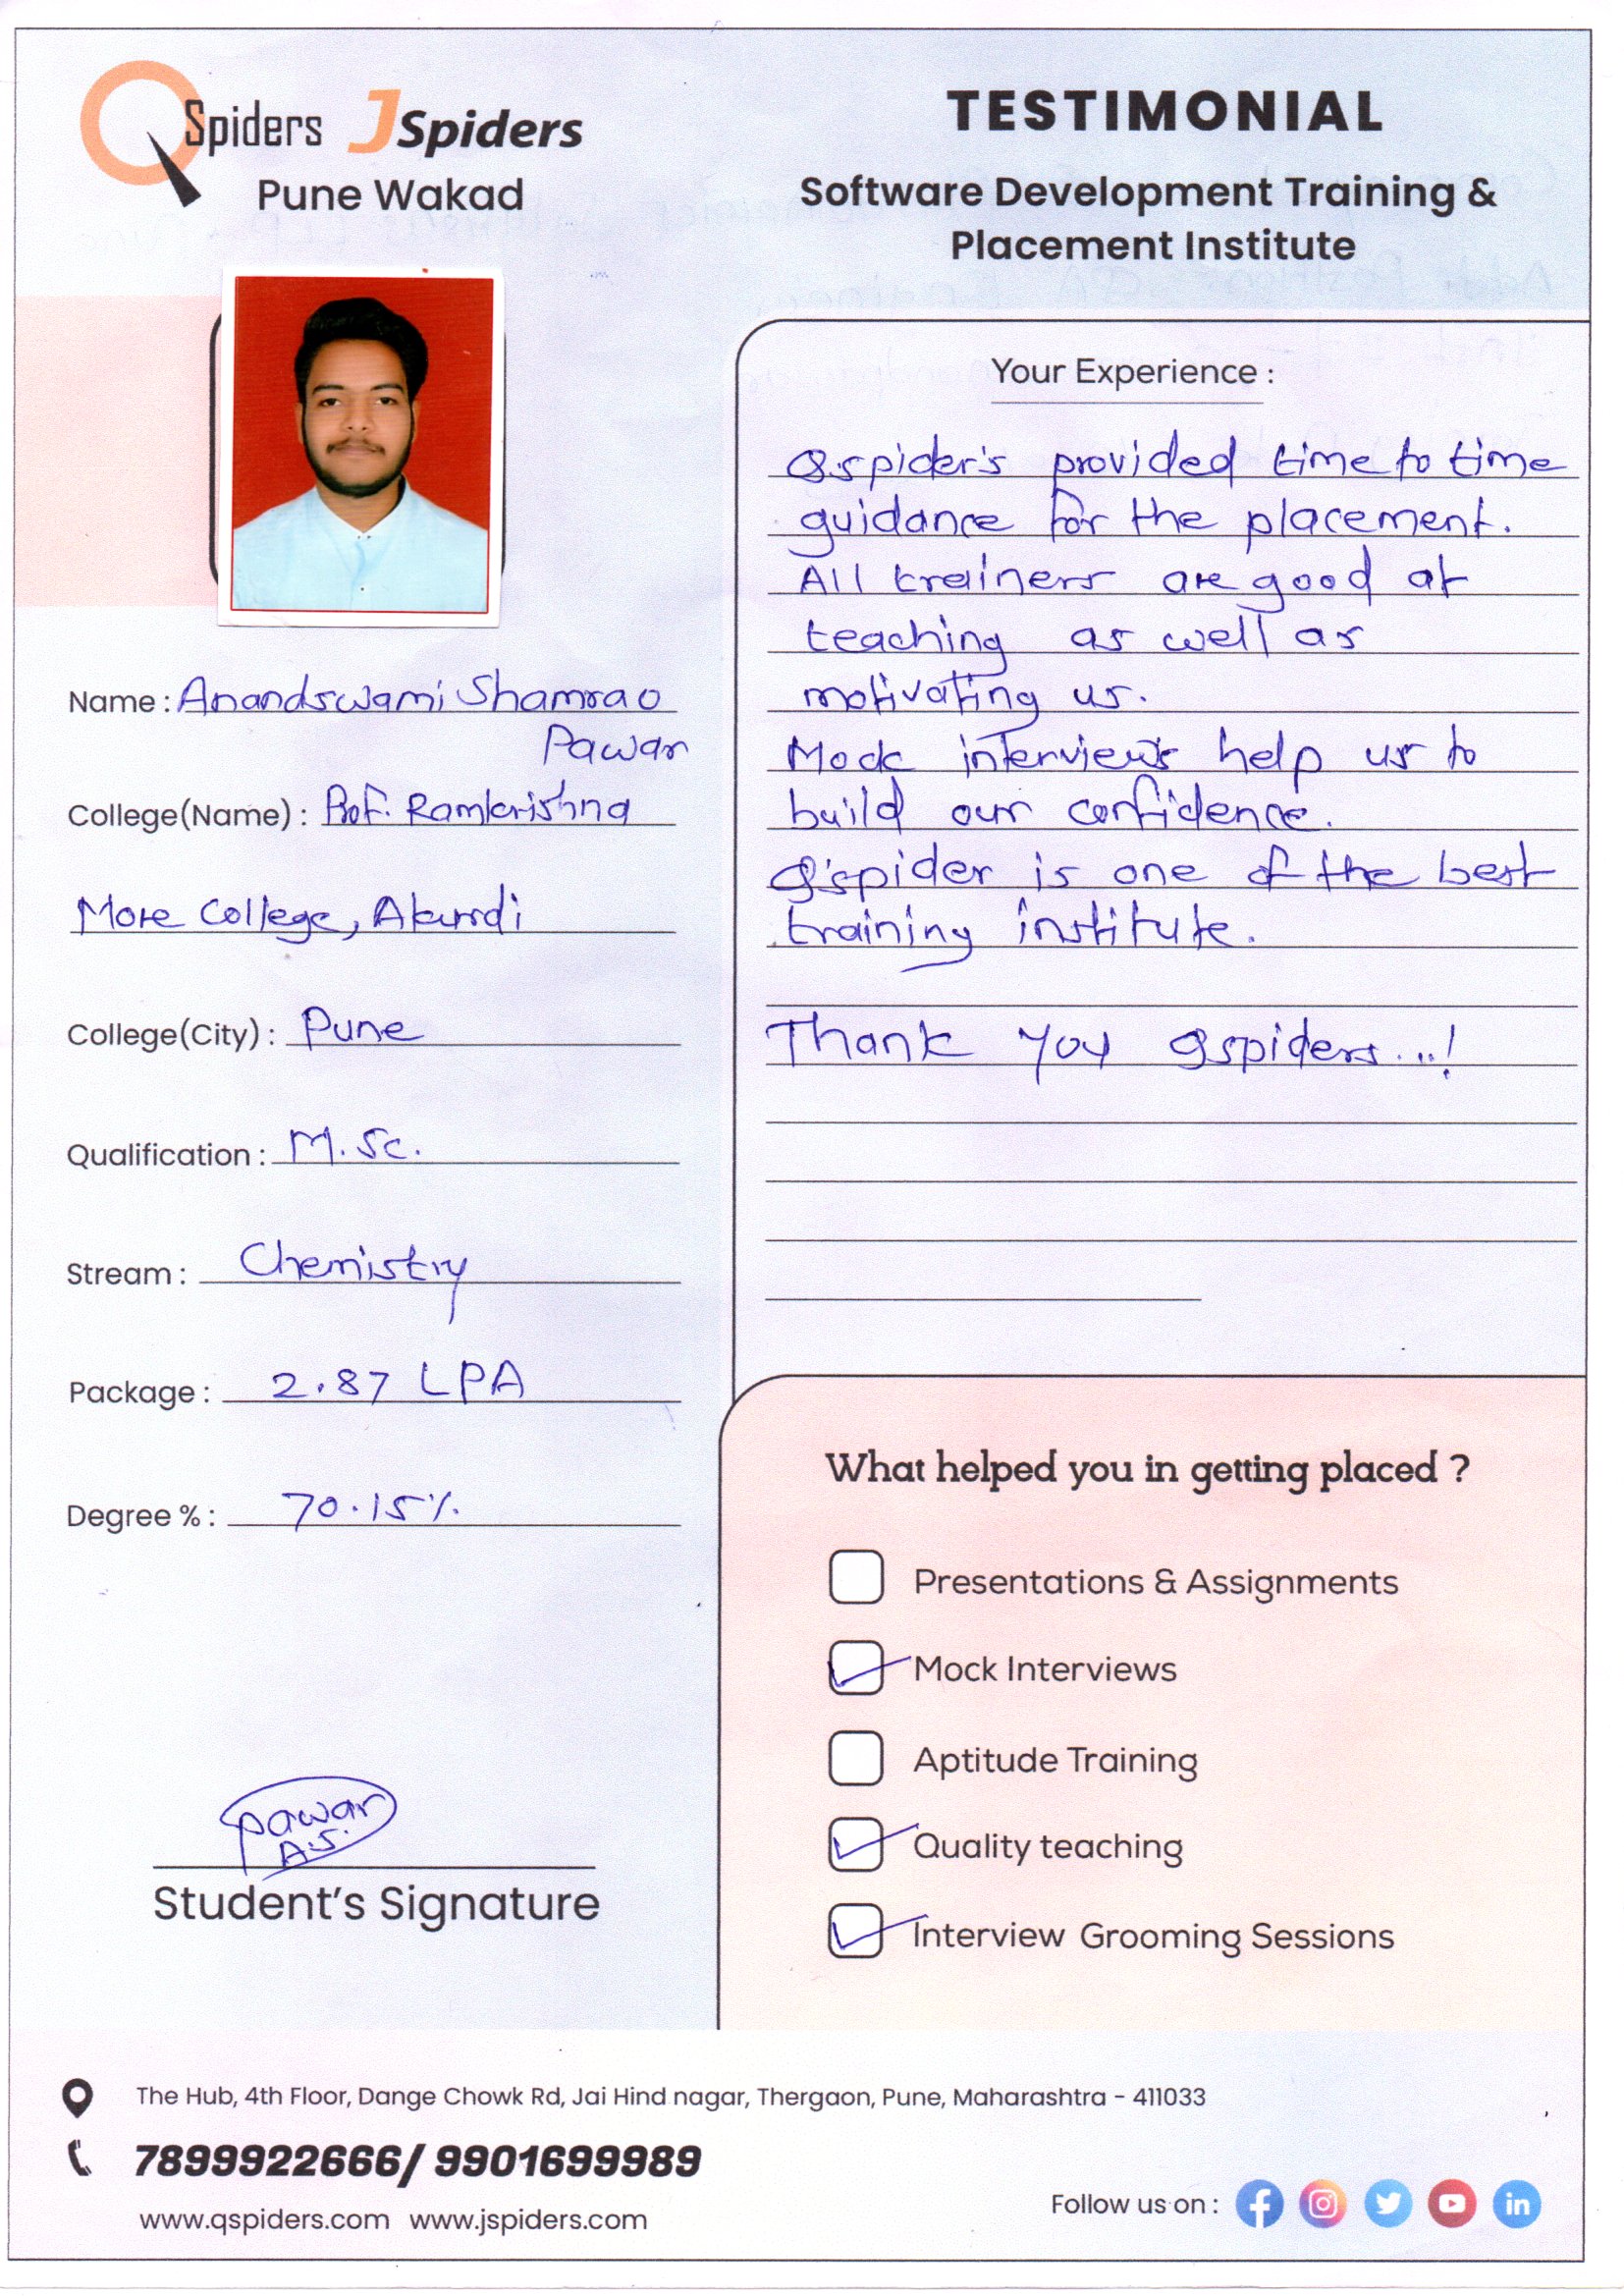 QSpiders JSpiders
Pune Wakad
TESTIMONIAL
Software Development Training &
Placement Institute
Name : Anandswami Shamrao
Pawar
College(Name) : Prof. Ramkrishna
More College, Akurdi
College(City) : Pune
Qualification : M.Sc.
Stream : Chemistry
Package : 2.87 LPA
Degree % : 70.15%
Pawar
A.S.
Student's Signature
Your Experience :
Qspider's provided time to time
guidance for the placement.
All trainers are good at
teaching as well as
motivating us.
Mock interviews help us to
build our confidence.
Q'spider is one of the best
training institute.
Thank you Qspiders...!
What helped you in getting placed ?
Presentations & Assignments
Mock Interviews
Aptitude Training
Quality teaching
Interview Grooming Sessions
The Hub, 4th Floor, Dange Chowk Rd, Jai Hind nagar, Thergaon, Pune, Maharashtra - 411033
7899922666/ 9901699989
www.qspiders.com www.jspiders.com
Follow us on :